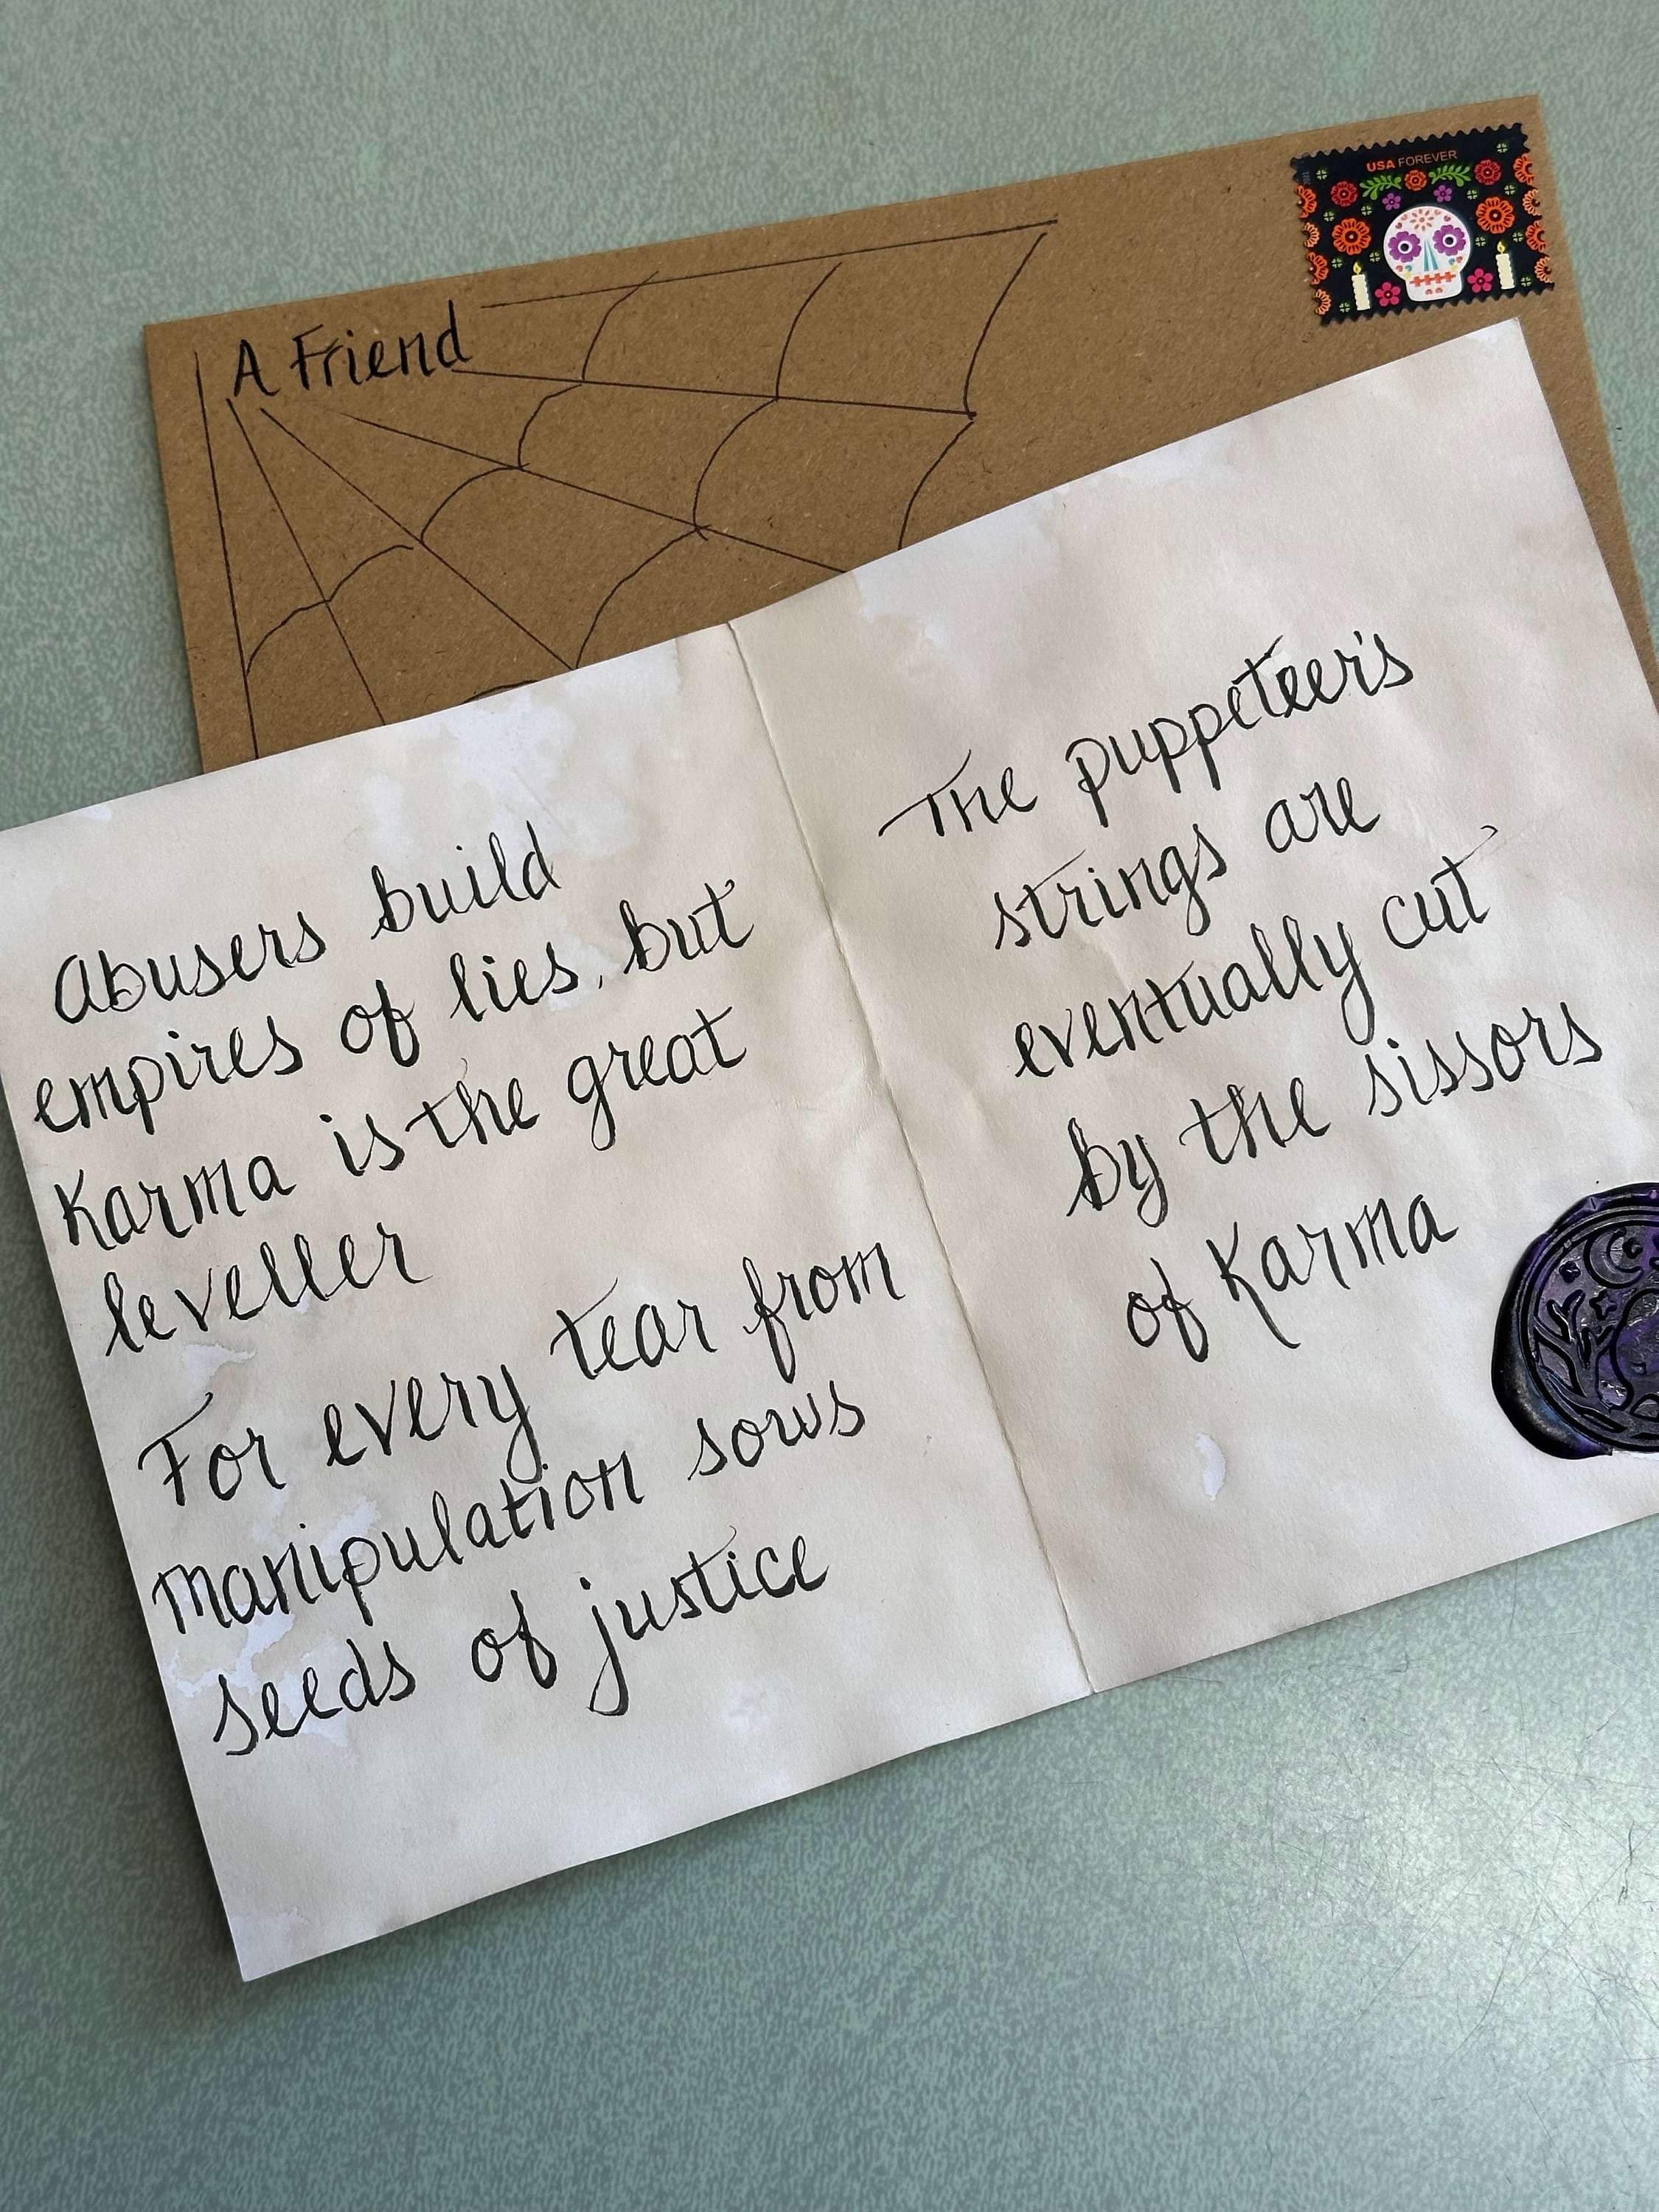 A Friend
USA FOREVER
Abusers build
empires of lies, but
Karma is the great
leveller
For every tear from
manipulation sows
seeds of justice
The puppeteer's
strings are
eventually cut
by the sissors
of Karma